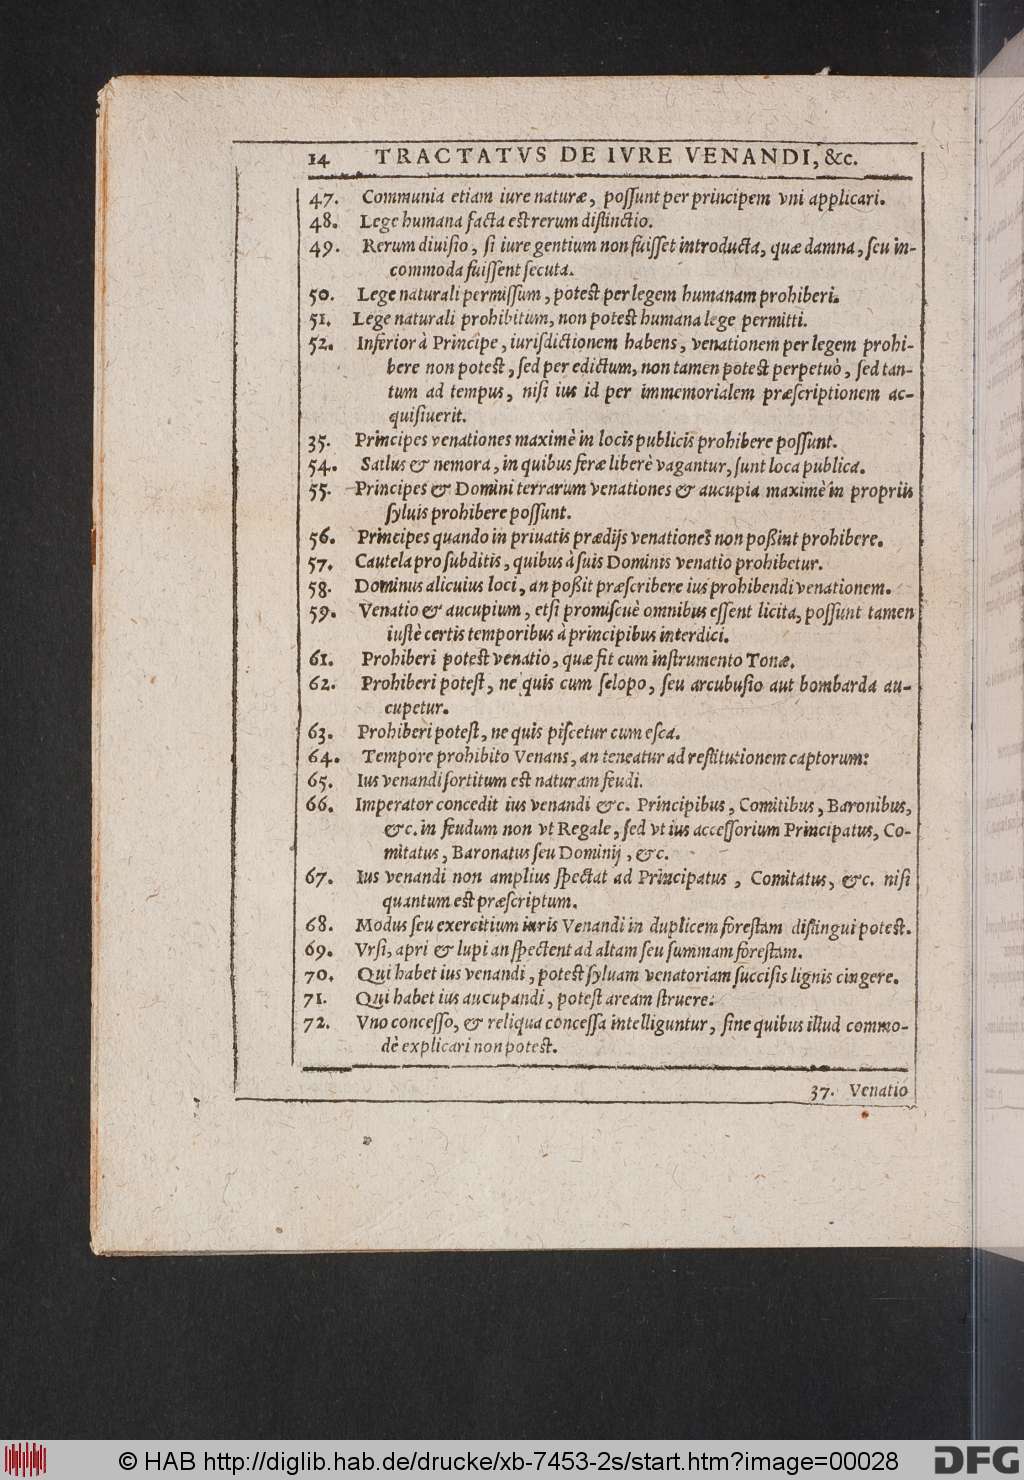 14 TRACTATVS DE IVRE VENANDI, &c.
47. Communia etiam iure naturæ, possunt per principem vni applicari.
48. Lege humana facta est rerum distinctio.
49. Rerum diuisio, si iure gentium non fuisset introducta, quæ damna, seu in-
commoda fuissent secuta.
50. Lege naturali permissum, potest per legem humanam prohiberi.
51. Lege naturali prohibitum, non potest humana lege permitti.
52. Inferior à Principe, iurisdictionem habens, venationem per legem prohi-
bere non potest, sed per edictum, non tamen potest perpetuò, sed tan-
tum ad tempus, nisi ius id per immemorialem præscriptionem ac-
quisiuerit.
35. Principes venationes maximè in locis publicis prohibere possunt.
54. Satlus & nemora, in quibus feræ liberè vagantur, sunt loca publica.
55. Principes & Domini terrarum venationes & aucupia maximè in propriis
syluis prohibere possunt.
56. Principes quando in priuatis prædijs venationes non poßint prohibere.
57. Cautela pro subditis, quibus à suis Dominis venatio prohibetur.
58. Dominus alicuius loci, an poßit præscribere ius prohibendi venationem.
59. Venatio & aucupium, etsi promiscuè omnibus essent licita, possunt tamen
iustè certis temporibus à principibus interdici.
61. Prohiberi potest venatio, quæ fit cum instrumento Tonæ.
62. Prohiberi potest, ne quis cum selopo, seu arcubusio aut bombarda au-
cupetur.
63. Prohiberi potest, ne quis piscetur cum esca.
64. Tempore prohibito Venans, an teneatur ad restitutionem captorum:
65. Ius venandi sortitum est naturam feudi.
66. Imperator concedit ius venandi &c. Principibus, Comitibus, Baronibus,
&c. in feudum non vt Regale, sed vt ius accessorium Principatus, Co-
mitatus, Baronatus seu Dominij, &c.
67. Ius venandi non amplius spectat ad Principatus, Comitatus, &c. nisi
quantum est præscriptum.
68. Modus seu exercitium iuris Venandi in duplicem forestam distingui potest.
69. Vrsi, apri & lupi an spectent ad altam seu summam forestam.
70. Qui habet ius venandi, potest syluam venatoriam succisis lignis cingere.
71. Qui habet ius aucupandi, potest aream struere.
72. Vno concesso, & reliqua concessa intelliguntur, sine quibus illud commo-
dè explicari non potest.
37. Venatio
© HAB http://diglib.hab.de/drucke/xb-7453-2s/start.htm?image=00028
DFG